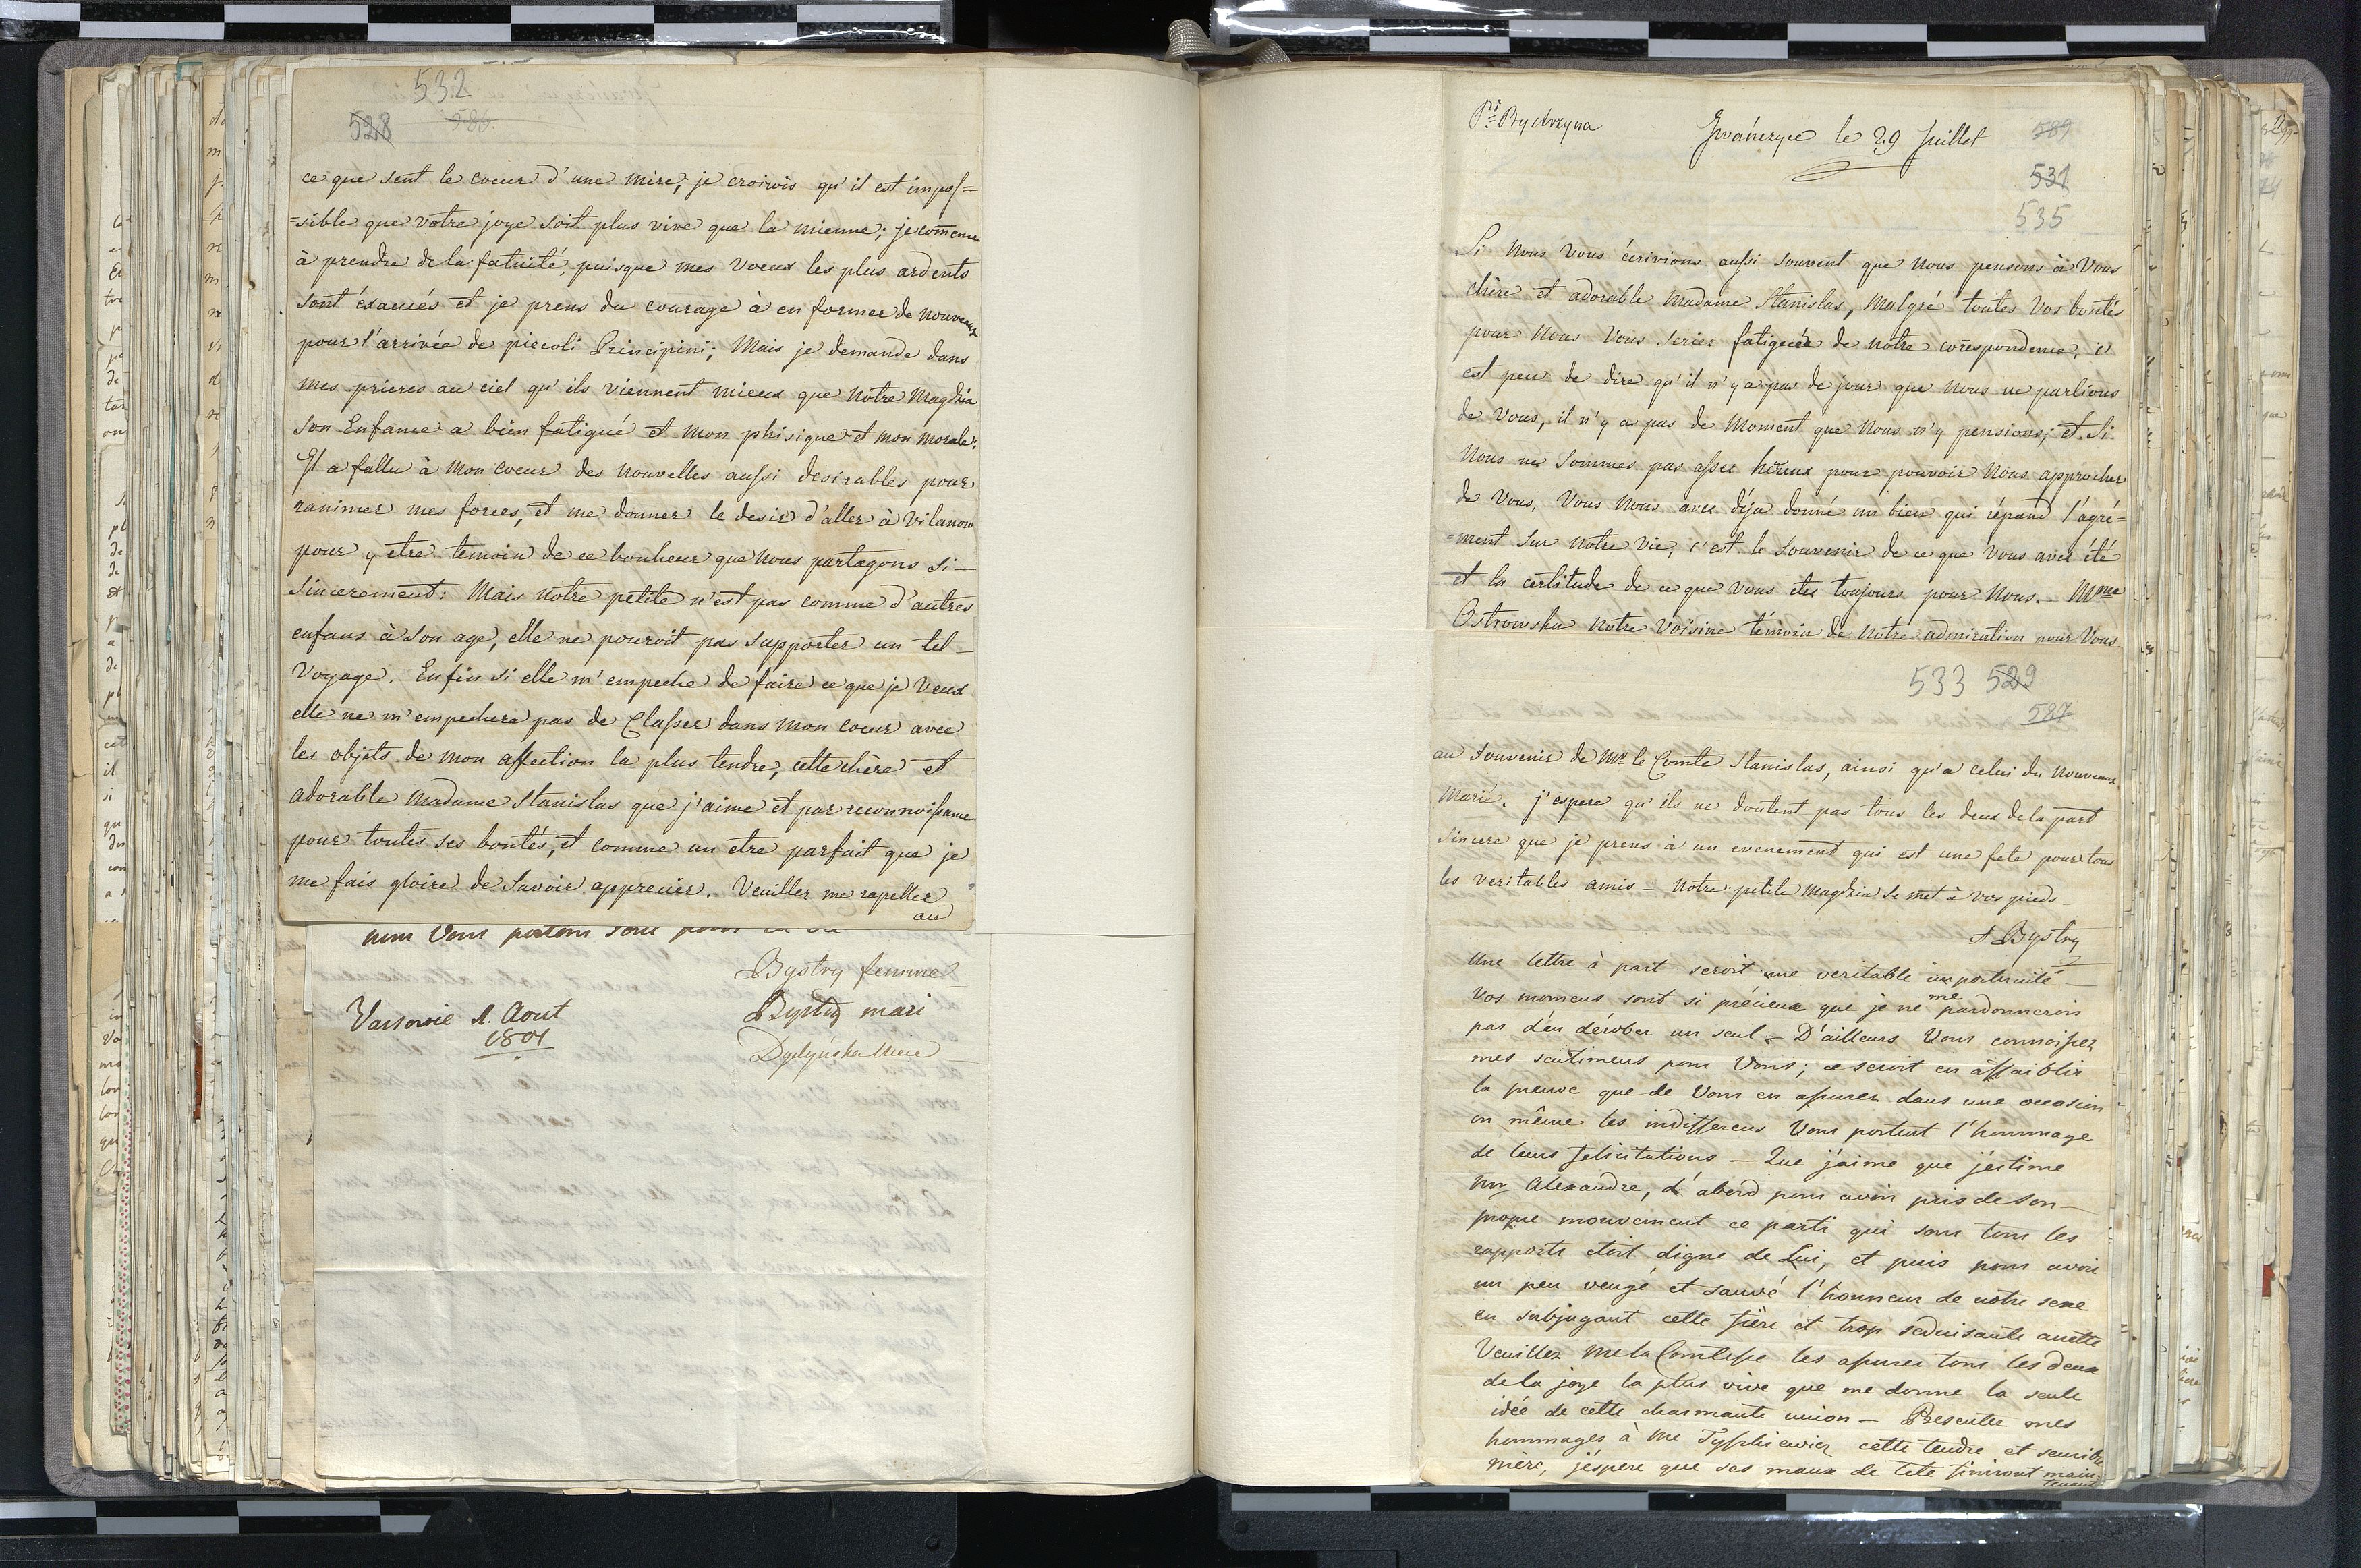 532
528 586.
ce que sent le coeur d'une mère, je croirois qu'il est impos=
=sible que votre joye soit plus vive que la mienne; je com̅ence
à prendre de la fatuité, puisque mes voeux les plus ardents
sont éxaucés et je prens du courage à en former de nouveaux
pour l'arrivée de piccoli Principini; Mais je demande dans
mes prieres au ciel qu'ils viennent mieux que notre Magdzia
son Enfance a bien fatigué et mon phisique et mon morale;
Il a fallu à mon coeur des nouvelles aussi desirables pour
ranimer mes forces, et me donner le desir d'aller à Vilanow
pour y etre temoin de ce bonheur que nous partagons si-
sincerement: Mais notre petite n'est pas comme d'autres
enfans à son age, elle ne pouroit pas supporter un tel-
Voyage. Enfin si elle m'empeche de faire ce que je veux
elle ne m'empechera pas de Classer dans mon coeur avec
les objets de mon affection la plus tendre, cette chère et
adorable Madame Stanislas que j'aime et par reconnoissance
pour toutes ses bontés, et comme un etre parfait que je
me fais gloire de savoir apprecier. Veuillez me rapeller
au
nous Vous portons
Bystry femme
Varsovie 1. Aout
Bystry mari
1801
P: Bystrzyna
Iwańczyce le 29 Juillet
589
531
535
Si nous vous écrivions aussi souvent que nous pensons à Vous
chère et adorable Madame Stanislas, Malgré toutes Vos bontés
pour nous Vous seriez fatiguée de notre correspondence, c'
est peu de dire qu'il n'y a pas de jour que nous ne parlions
de Vous, il n'y a pas de moment que nous n'y pensions; et Si
nous ne sommes pas assez hereux pour pouvoir nous approcher
de Vous, Vous nous avez déja donné un bien qui répand l'agré=
=ment sur notre vie, c'est le souvenir de ce que vous avez été
et la certitude de ce que vous etes toujours pour nous. Mme
Ostrowska notre voisine témoin de notre admiration pour Vous
533 529
587
au souvenir de Mr le Comte Stanislas, ainsi qu'a celui du nouveau
Marié. j'espere qu'ils ne doutent pas tous les deux de la part
sincere que je prens à un evenement qui est une fete pour tous
les veritables amis - Notre petite Magdzia se met à vos pieds -
A Bystry
Une lettre à part seroit une veritable importunité -
Vos momens sont si précieux que je ne me pardonnerois
pas d'en dérober un seul - D'ailleurs Vous connoissez
mes sentimens pour Vous; ce seroit en affaiblir
la preuve que de Vous en assurer dans une occasion
où même les indifferens Vous portent l'hommage
de leurs felicitations - Que j'aime que j'estime
Mr Alexandre, d'abord pour avoir pris de son-
propre mouvement ce parti qui sous tous les
rapports etoit digne de Lui, et puis pour avoir
un peu vengé et sauvé l'honneur de notre sexe
en subjugant cette fière et trop seduisante anette
Veuillez Me la Comtesse les assurer tous les deux
de la joye la plus vive que me donne la seule
idée de cette charmante union - Presentez mes
hommages à Me Tyszkiewicz cette tendre et sensible
mère, j'espere que ses maux de tete finiront main-
tenant